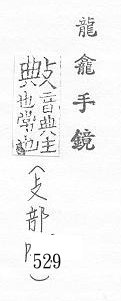 龍龕手鏡
敟音典主
也常也
(攴部
P.529)